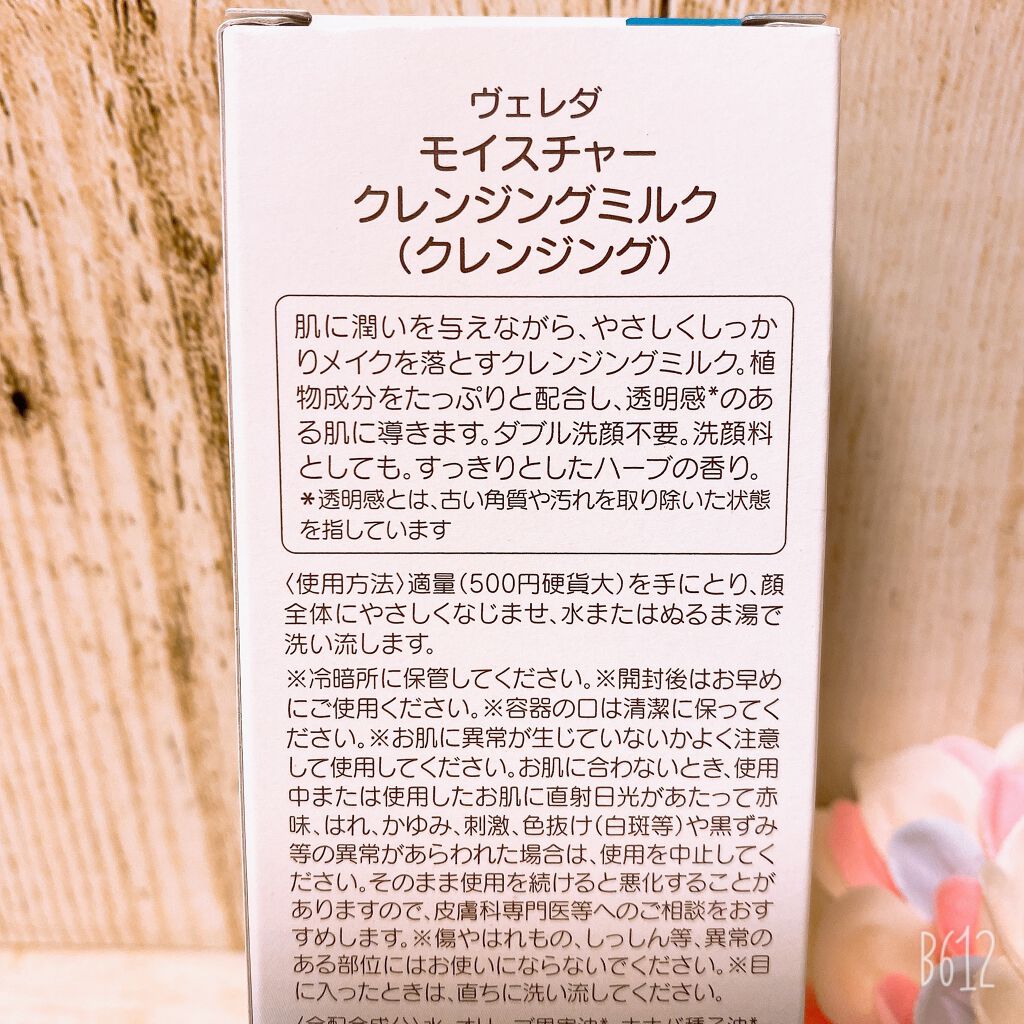 ヴェレダ
モイスチャー
クレンジングミルク
(クレンジング)
肌に潤いを与えながら、やさしくしっか
りメイクを落とすクレンジングミルク。植
物成分をたっぷりと配合し、透明感*のあ
る肌に導きます。ダブル洗顔不要。洗顔料
としても。すっきりとしたハーブの香り。
*透明感とは、古い角質や汚れを取り除いた状態
を指しています
〈使用方法〉適量(500円硬貨大)を手にとり、顔
全体にやさしくなじませ、水またはぬるま湯で
洗い流します。
※冷暗所に保管してください。※開封後はお早め
にご使用ください。※容器の口は清潔に保ってく
ださい。※お肌に異常が生じていないかよく注意
して使用してください。お肌に合わないとき、使用
中または使用したお肌に直射日光があたって赤
味、はれ、かゆみ、刺激、色抜け(白斑等)や黒ずみ
等の異常があらわれた場合は、使用を中止してく
ださい。そのまま使用を続けると悪化することが
ありますので、皮膚科専門医等へのご相談をおす
すめします。※傷やはれもの、しっしん等、異常の
ある部位にはお使いにならないでください。※目
に入ったときは、直ちに洗い流してください。
B612